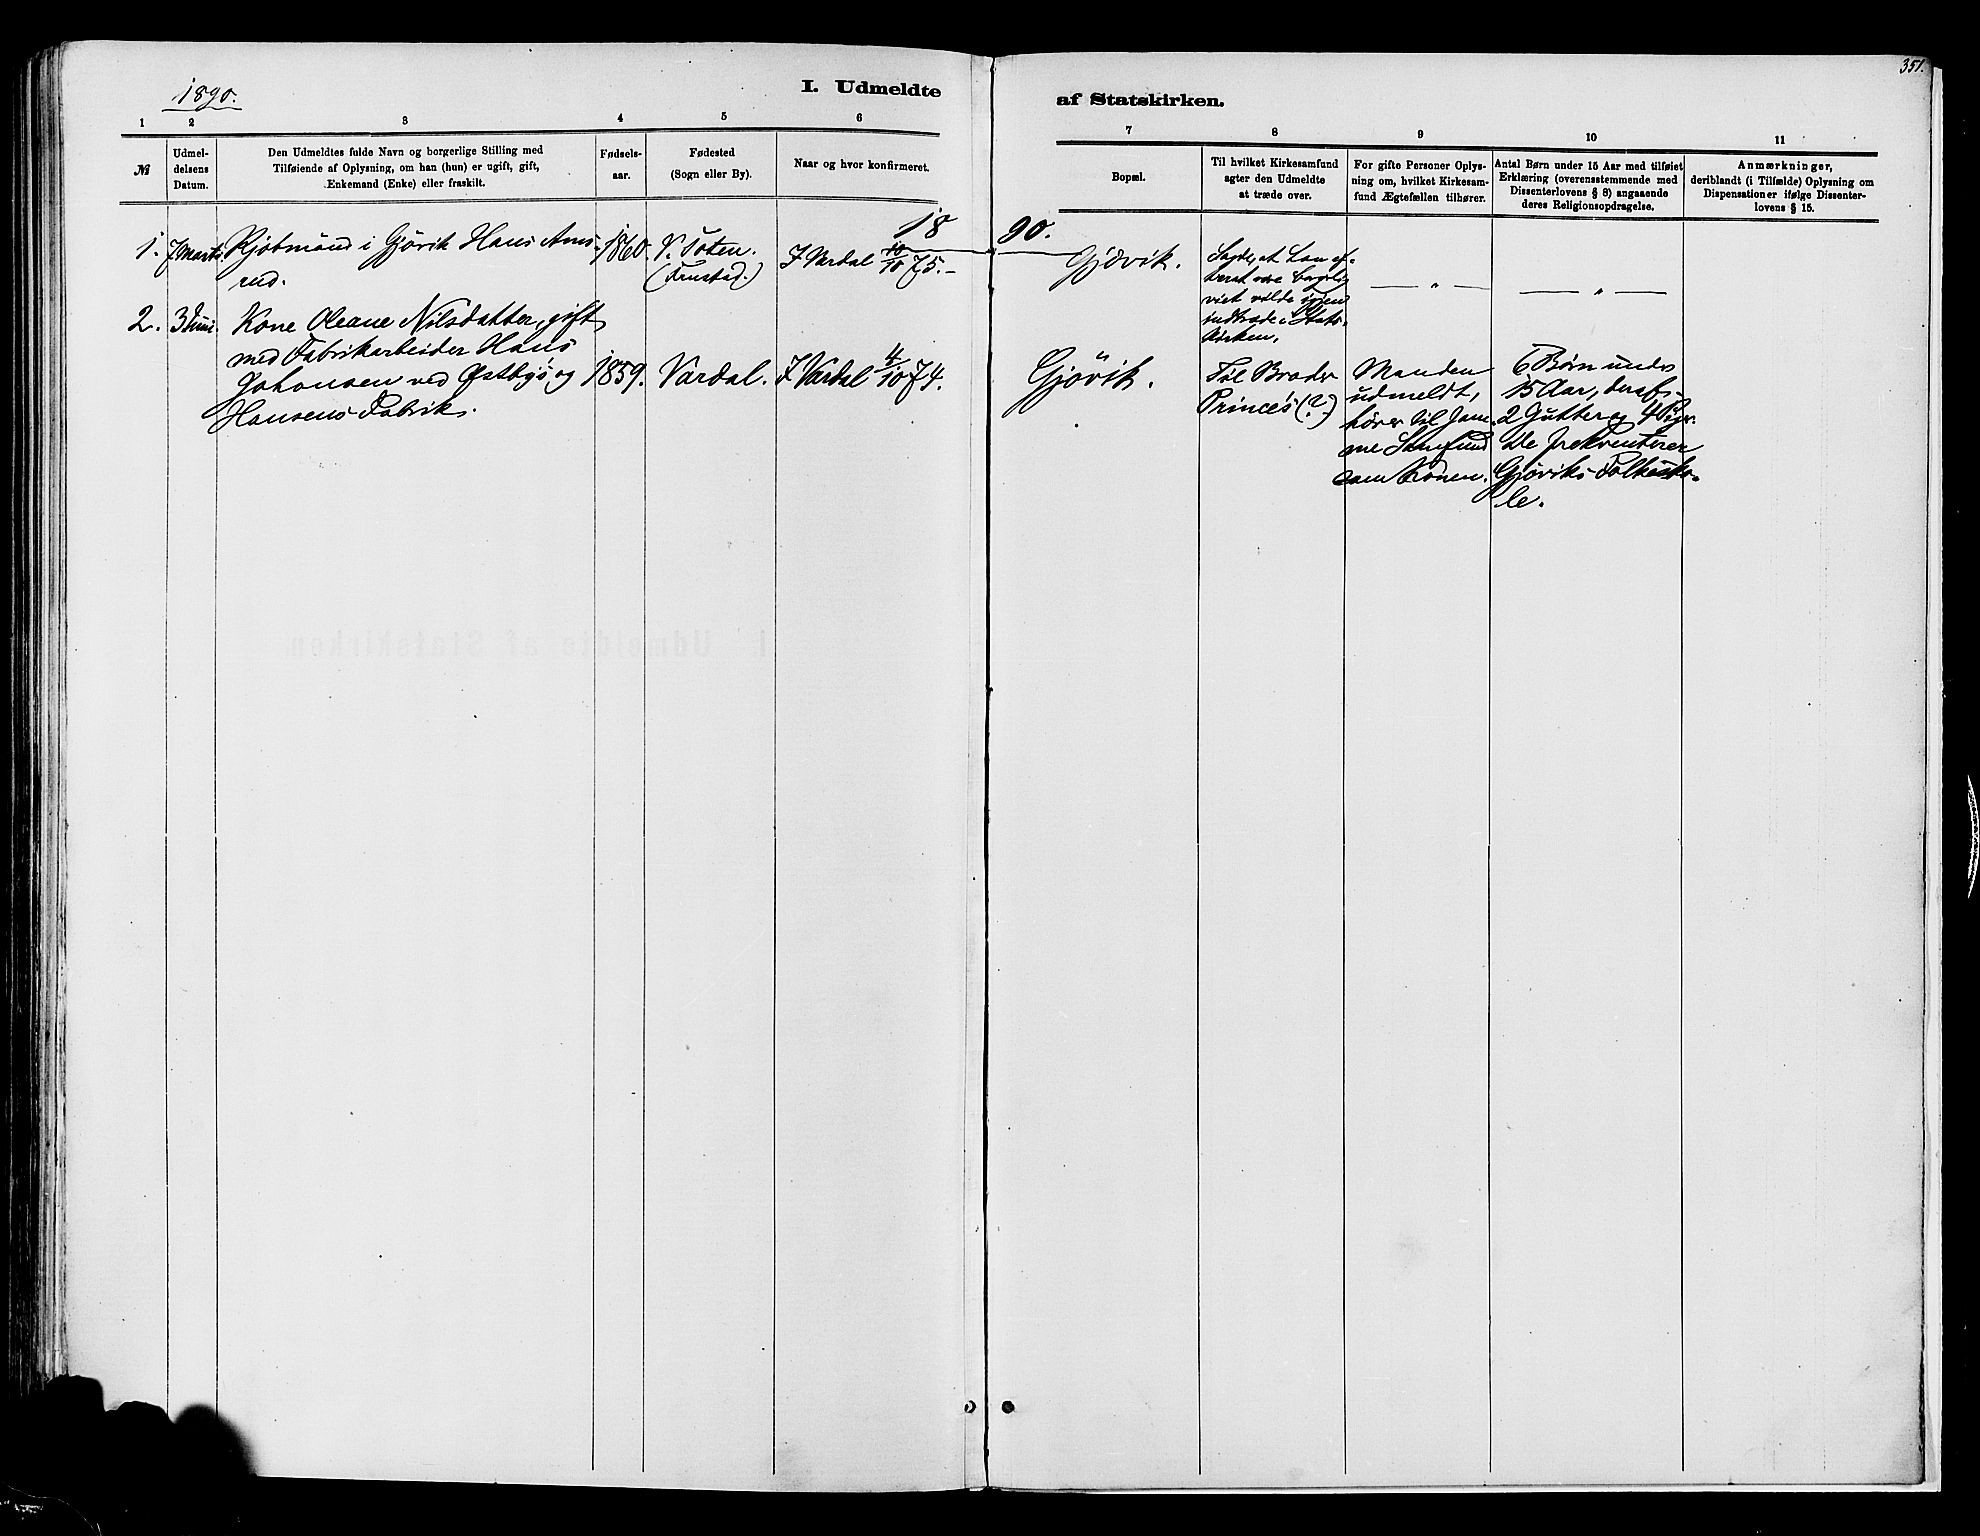 351.
1890.
I. Udmeldte af Statskirken.
1 2 3 4 5 6 7 8 9 10 11
№
Udmel-
delsens
Datum.
Den Udmeldtes fulde Navn og borgerlige Stilling med
Tilføiende af Oplysning, om han (hun) er ugift, gift,
Enkemand (Enke) eller fraskilt.
Fødsels-
aar.
Fødested
(Sogn eller By).
Naar og hvor konfirmeret.
Bopæl.
Til hvilket Kirkesamfund
agter den Udmeldte
at træde over.
For gifte Personer Oplys-
ning om, hvilket Kirkesam-
fund Ægtefællen tilhører.
Antal Børn under 15 Aar med tilføiet
Erklæring (overensstemmende med
Dissenterlovens § 8) angaaende
deres Religionsopdragelse.
Anmærkninger,
deriblandt (i Tilfælde) Oplysning om
Dispensationer ifølge Dissenter-
lovens § 15.
1890.
1.
7 Marts.
Kjøbmand i Gjøvik Hans Ams-
rud.
1860.
V. Toten.
I Vardal 10/10 75.-
Gjøvik.
Sagde, at han ef-
teret være borgerlig
viet vilde igjen
indtræde i Stats-
kirken.
— " —
— " —
2.
3 Juni.
Kone Oleane Nilsdatter, gift
med Fabrikarbeider Hans
Johansen ved Østbyes og
Hansens Fabrik.
1859.
Vardal.
I Vardal 4/10 74.
Gjøvik.
Til Broder
Princes (?)
Manden
udmeldt,
hører til sam-
me Samfund
som Konen.
6 Børn under
15 Aar, deraf
2 Gutter og 4 Piger.
De frekventerer
Gjøviks Folkesko-
le.